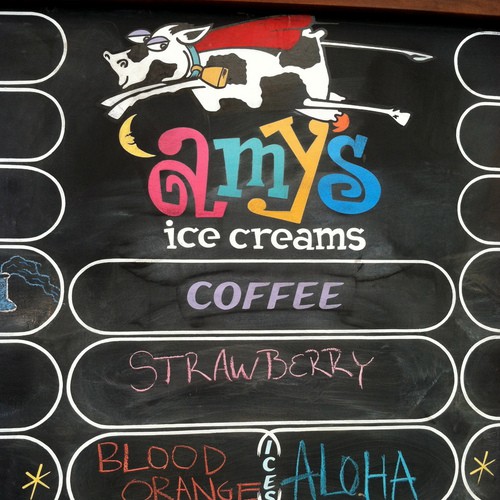 amy's
ice creams
COFFEE
STRAWBERRY
BLOOD
ORANGE
ICES
ALOHA